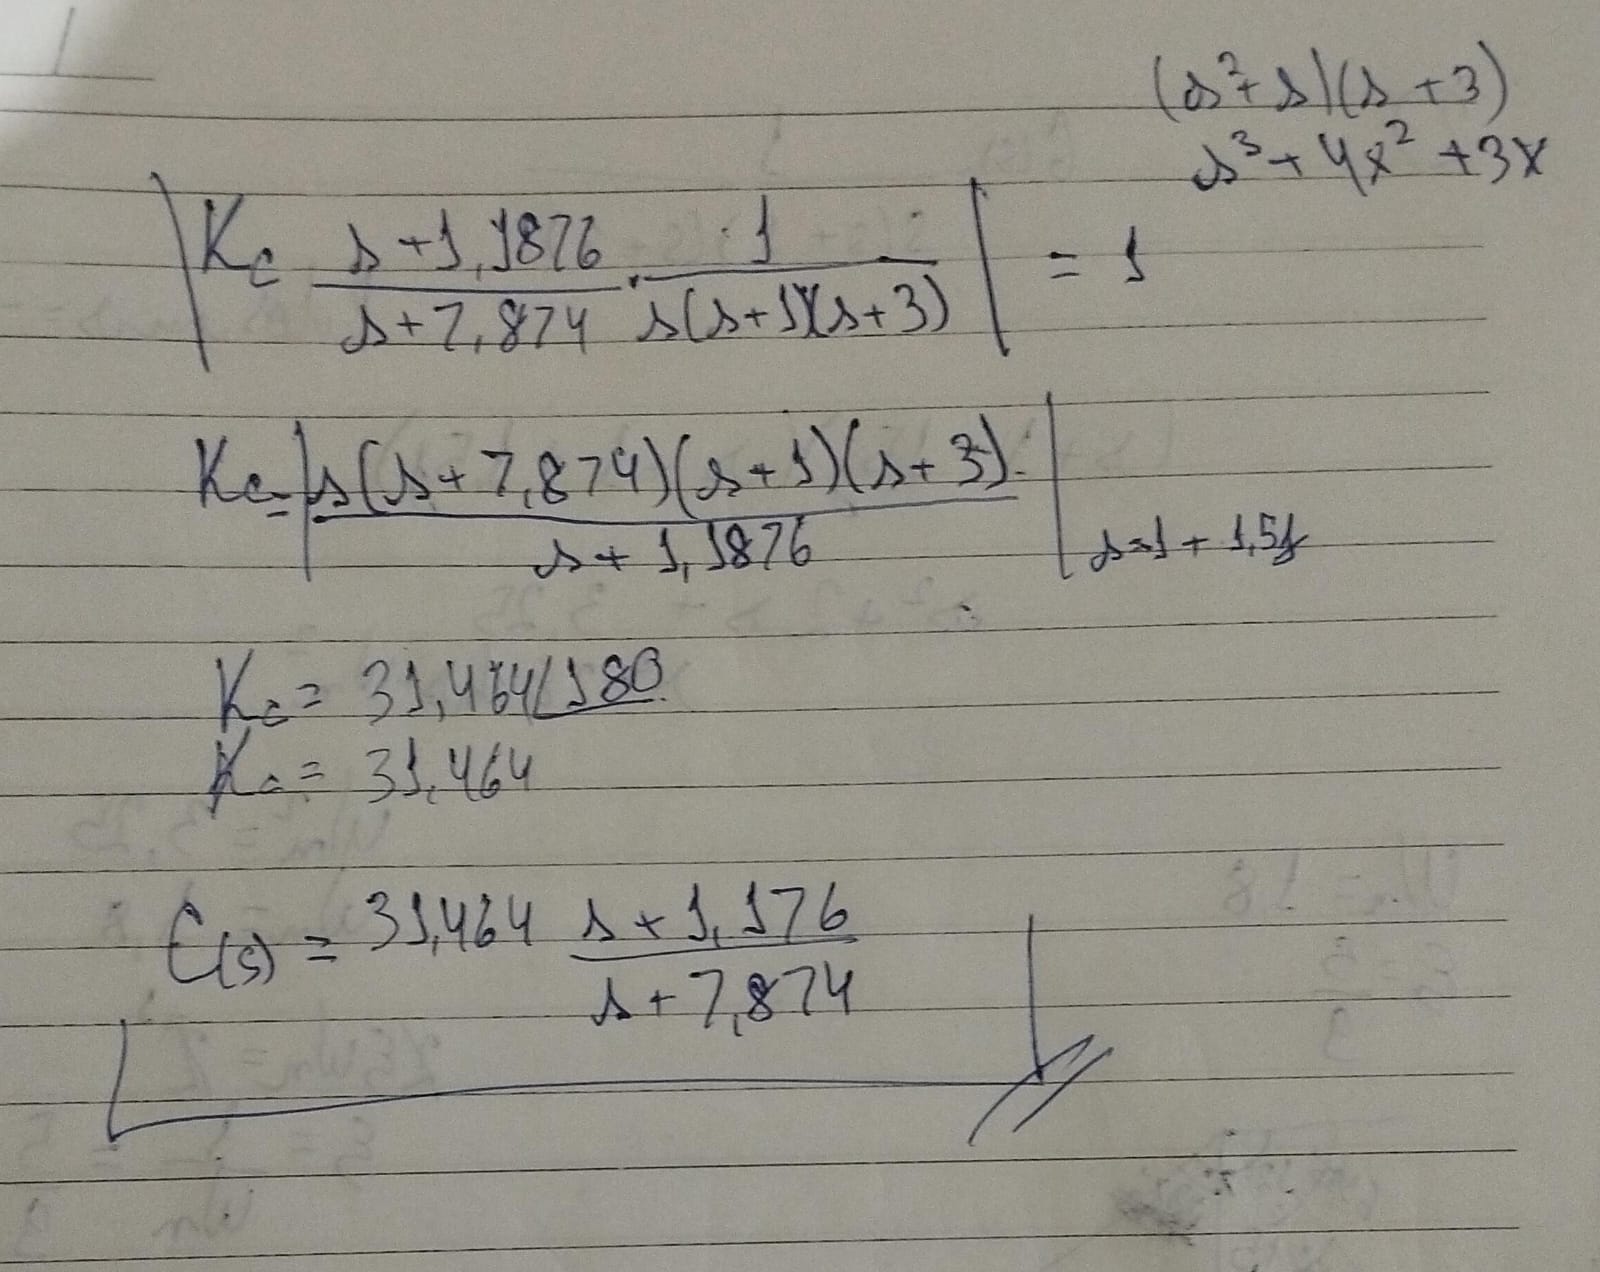 (s²+s)(s+3)
s³+4x²+3x
|Kc s+1,1876/s+7,874 · 1/s(s+1)(s+3)| = 1
Kc=|s(s+7,874)(s+1)(s+3)/s+1,1876| s=1+1,5j
Kc= 31,464∠180
Kc= 31,464
C(s) = 31,464 s+1,176/s+7,874